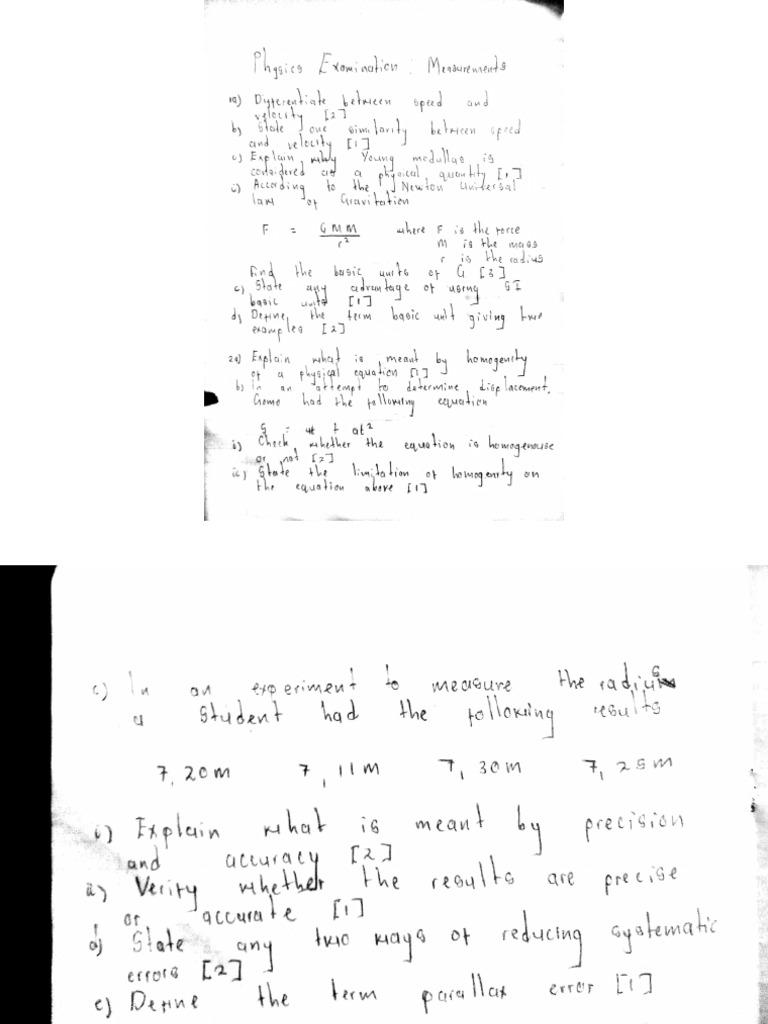 Physics Examination : Measurements
1a) Differentiate between speed and
velocity [2]
b) State one similarity between speed
and velocity [1]
c) Explain why Young modullas is
considered as a physical quantity [1]
i) According to the Newton Universal
law of Gravitation
F = GMM/r² where F is the force
M is the mass
r is the radius
Find the basic units of G [3]
c) State any advantage of using SI
basic units [1]
d) Define the term basic unit giving two
examples [2]
2a) Explain what is meant by homogenity
of a physical equation [1]
b) In an attempt to determine displacement,
Gomo had the following equation
S = ut + at²
i) Check whether the equation is homogenouse
or not [2]
ii) State the limitation of homogenity on
the equation above [1]
c) In an experiment to measure the radius
a student had the following results
7,20m 7,11m 7,30m 7,25m
i) Explain what is meant by precision
and accuracy [2]
ii) Verify whether the results are precise
or accurate [1]
d) State any two ways of reducing systematic
errors [2]
e) Define the term parallax error [1]